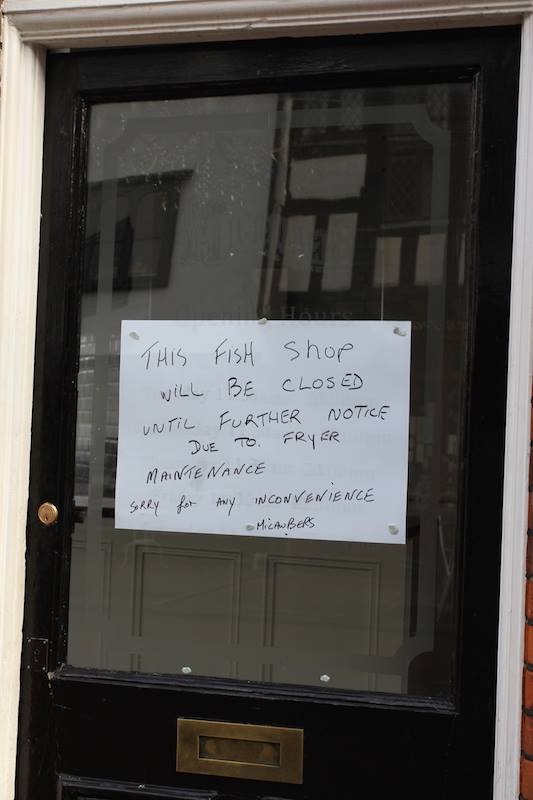 Opening Hours
THIS FISH SHOP
WILL BE CLOSED
UNTIL FURTHER NOTICE
DUE TO. FRYER
MAINTENANCE
SORRY for ANY INCONVENIENCE
MICAWBERS